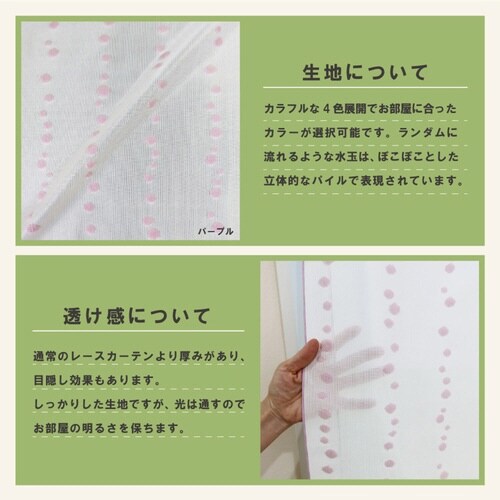 生地について
カラフルな4色展開でお部屋に合った
カラーが選択可能です。ランダムに
流れるような水玉は、ぽこぽことした
立体的なパイルで表現されています。
パープル
透け感について
通常のレースカーテンより厚みがあり、
目隠し効果もあります。
しっかりした生地ですが、光は通すので
お部屋の明るさを保ちます。